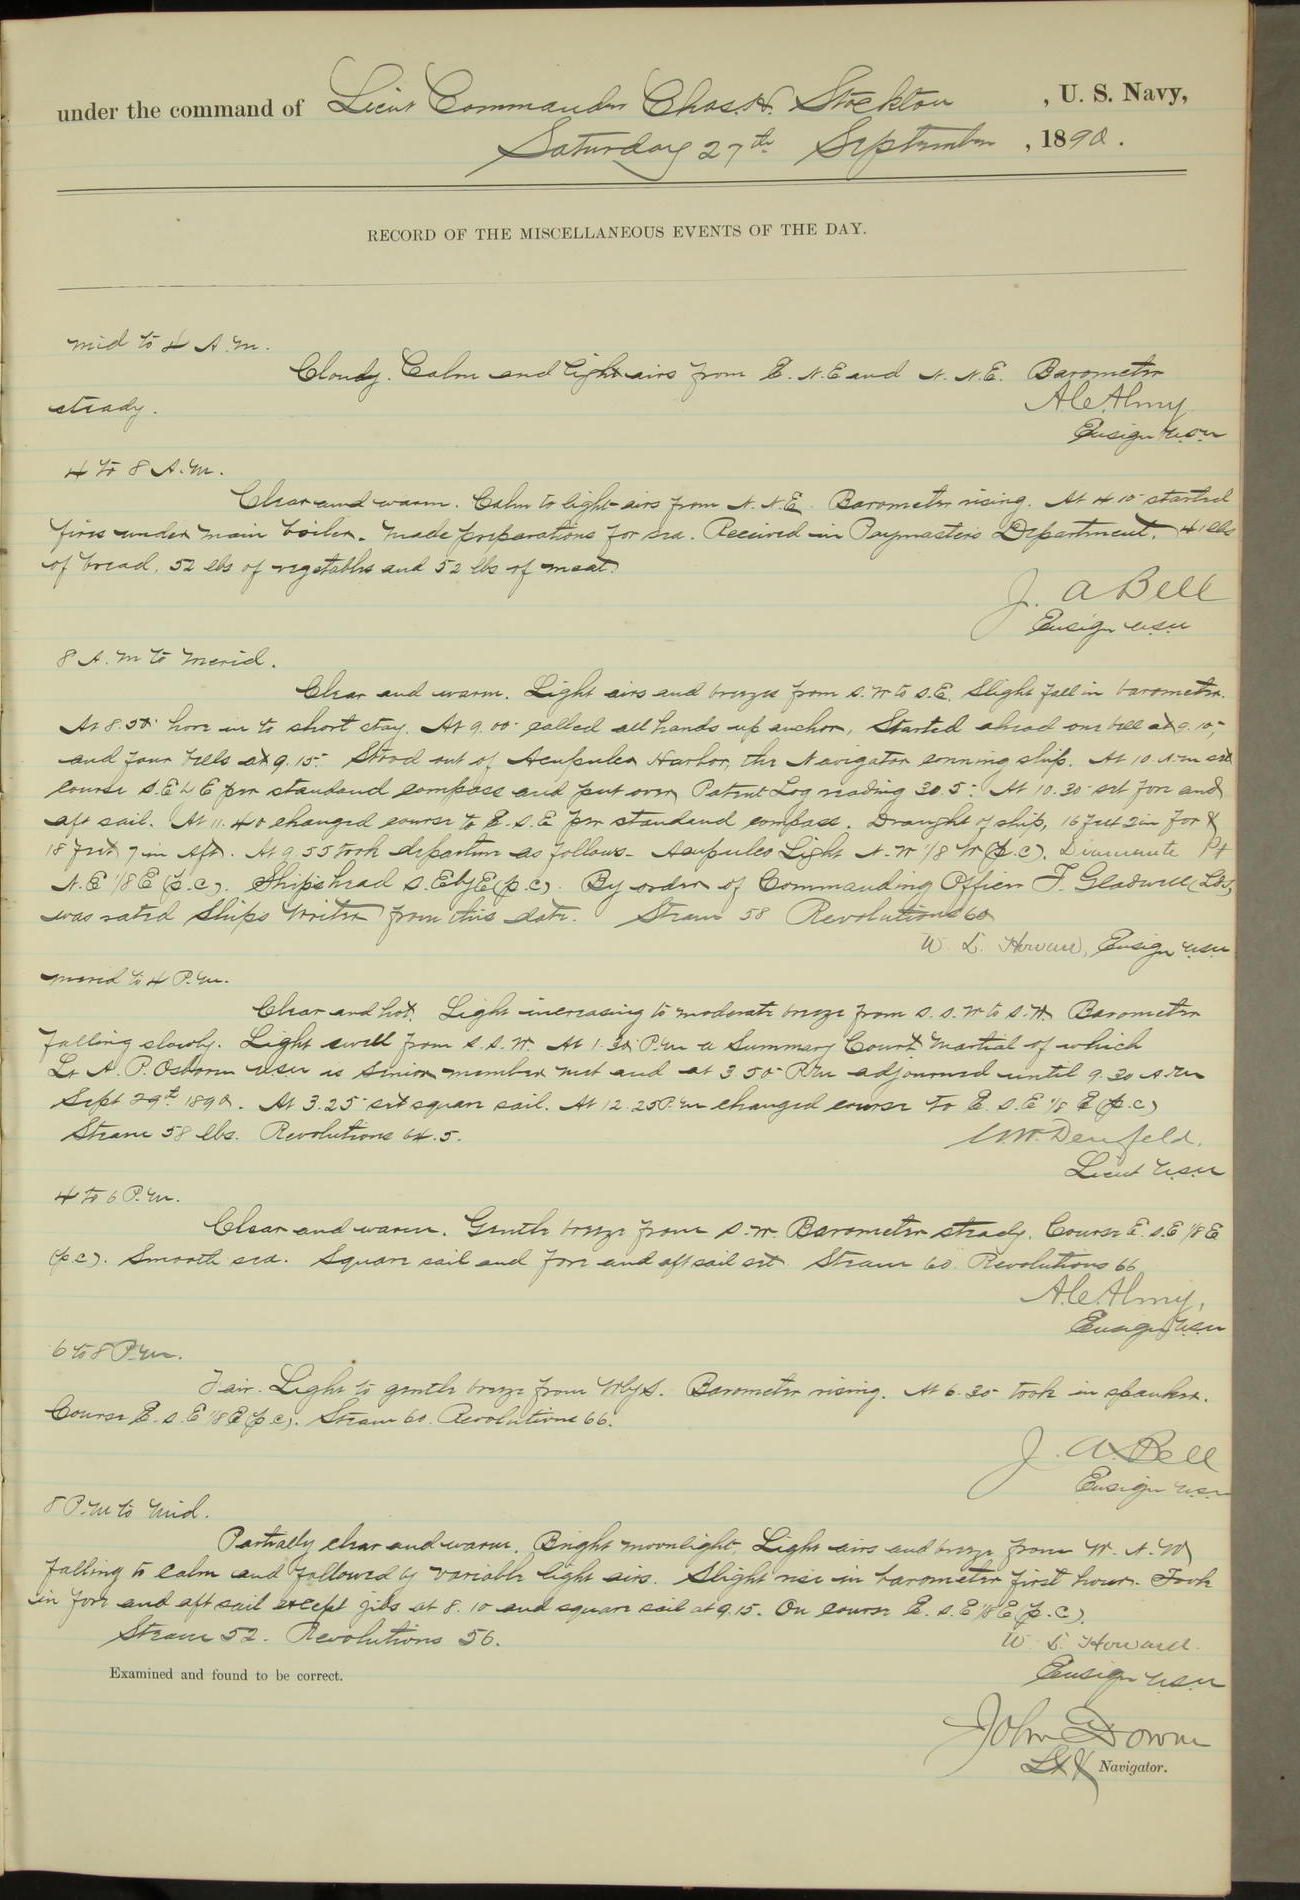 under the command of Lieut Commander Chas. H. Stockton, U. S. Navy,
Saturday 27th September, 1890.
RECORD OF THE MISCELLANEOUS EVENTS OF THE DAY.
Mid to 4 A.M.
Cloudy. Calm and light airs from E. N. E and N. N. E. Barometer
steady.
A. C. Almy
Ensign USN
4 to 8 A.M.
Clear and warm. Calm to light airs from N. N. E. Barometer rising. At 4 10 started
fires under main boiler. Made preparations for sea. Received in Paymasters Department, 41 lbs
of bread, 52 lbs of vegetables and 52 lbs of meat.
J. A Bell
Ensign USN
8 A.M to Merid.
Clear and warm. Light airs and breezes from S. W to S. E. Slight fall in barometer.
At 8.50 hove in to short stay. At 9.00 called all hands up anchor, Started ahead one bell at 9.10,
and four bells at 9.15. Stood out of Acapulco Harbor, the Navigator conning ship. At 10 A.m set
course S. E by E per standard compass and put over Patent Log reading 30.5. At 10.30 set fore and
aft sail. At 11.40 changed course to E. S. E per standard compass. Draught of ship, 16 feet 2 in For'd
18 feet 7 in Aft. At 9.55 took departure as follows - Acapulco Light N. W 1/8 W (p. c). Diamante Pt
N. E 1/8 E (p. c). Ships head S. E by E (p. c). By order of Commanding Officer F. Gladwell (Lds)
was rated Ships Writer from this date. Steam 58 Revolutions 60
W. L. Howard, Ensign USN
Merid to 4 P.M.
Clear and hot. Light increasing to moderate breeze from S. S. W to S. W. Barometer
falling slowly. Light swell from S. S. W. At 1.30 P.m a Summary Court Martial of which
Lt A. P. Osborn USN is Senior member met and at 3.50 P.m adjourned until 9.30 A.m
Sept 29th 1890. At 3.25 set square sail. At 12.25 P.m changed course to E. S. E 1/8 E (p. c)
Steam 58 lbs. Revolutions 64.5.
Denfeld.
Lieut USN
4 to 6 P.M.
Clear and warm. Gentle breeze from S. W. Barometer steady. Course E. S. E 1/8 E
(p c). Smooth sea. Square sail and fore and aft sail set. Steam 60 Revolutions 66
A. C. Almy,
Ensign USN
6 to 8 P.M.
Fair. Light to gentle breeze from W by S. Barometer rising. At 6.30 took in spanker.
Course E. S. E 1/8 E (p. c). Steam 60. Revolutions 66.
J. A. Bell
Ensign USN
8 P.M to Mid.
Partially clear and warm. Bright moonlight. Light airs and breeze from W. N. W
falling to calm and followed by variable light airs. Slight rise in barometer first hour. Took
in fore and aft sail except jibs at 8.10 and square sail at 9.15. On course E. S. E 1/8 E (p. c).
Steam 52. Revolutions 56.
W. L. Howard.
Ensign USN
Examined and found to be correct.
John Downes
Lt & Navigator.